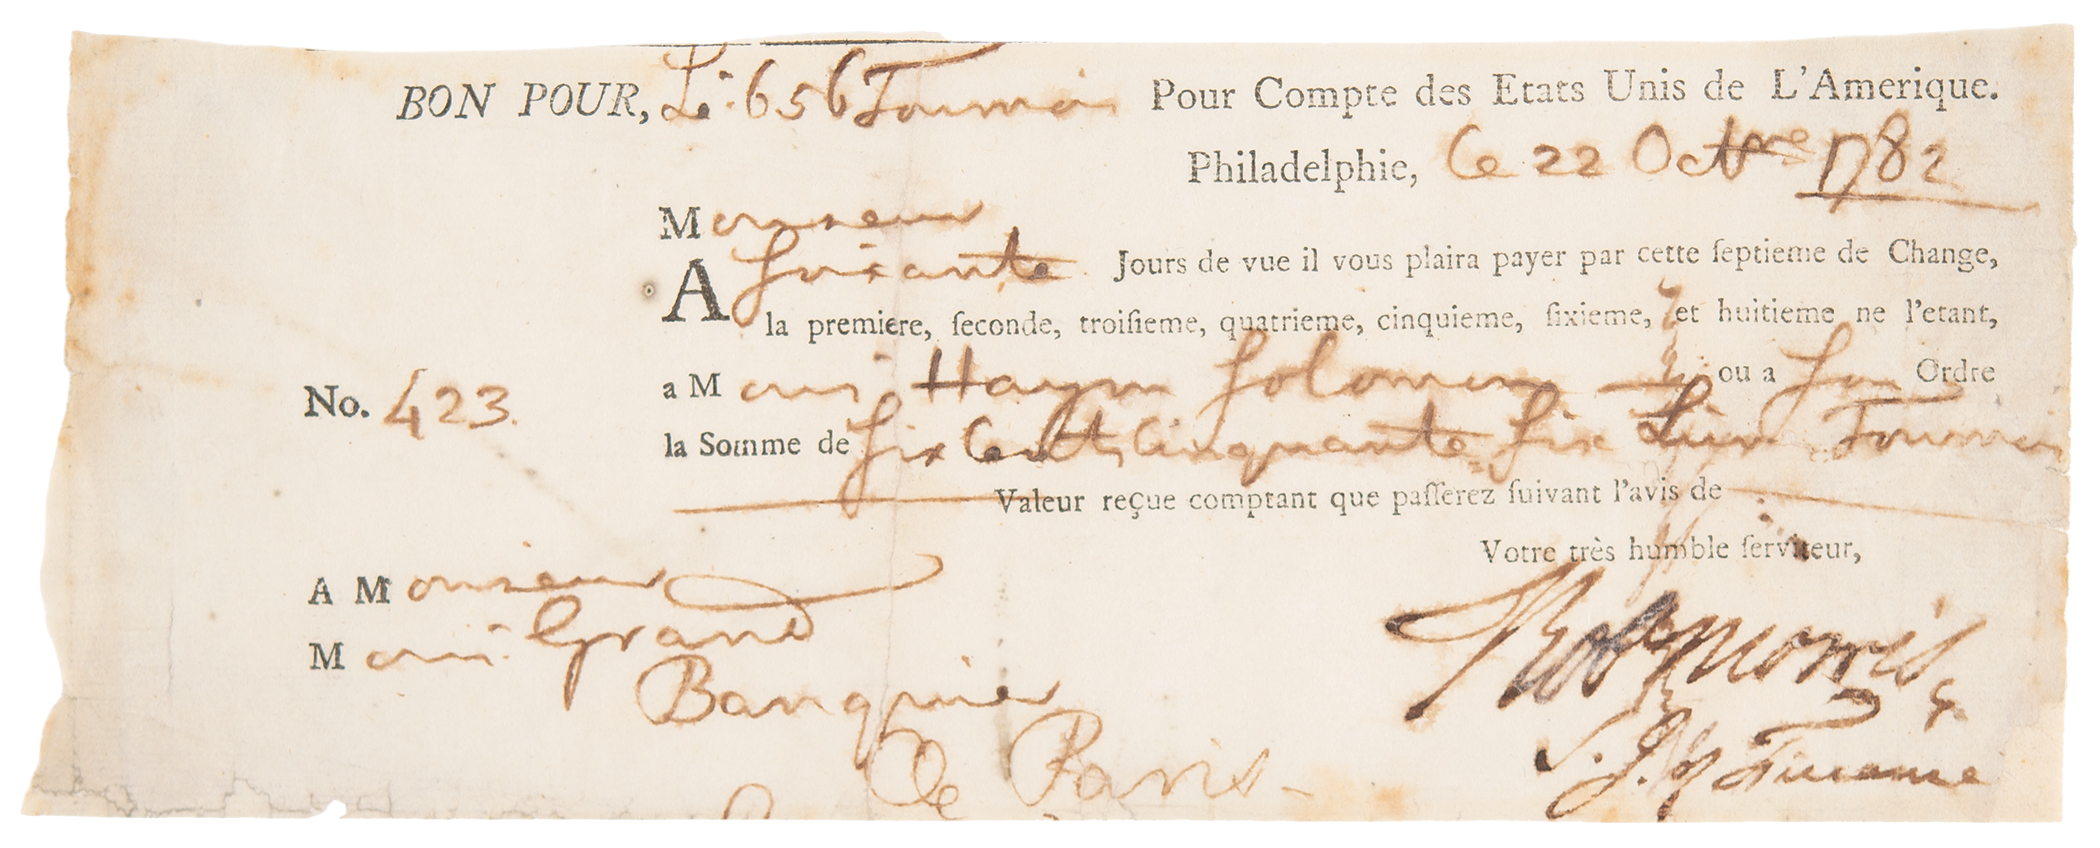 BON POUR, L. 656 Tournois Pour Compte des Etats Unis de L'Amerique.
Philadelphie, Ce 22 Octbre 1782
Monsieur
A Soixante Jours de vue il vous plaira payer par cette ſeptieme de Change,
la premiere, ſeconde, troiſieme, quatrieme, cinquieme, ſixieme, et huitieme ne l'etant,
No. 423. a M Haym Solomon ou a Son Ordre
la Somme de Six Cent Cinquante Six Livres Tournois
Valeur reçue comptant que paſſerez ſuivant l'avis de
Votre très humble ſerviteur,
A Monsieur
M Grand
Banquier
De Paris
Robt Morris
S. J. of Finance